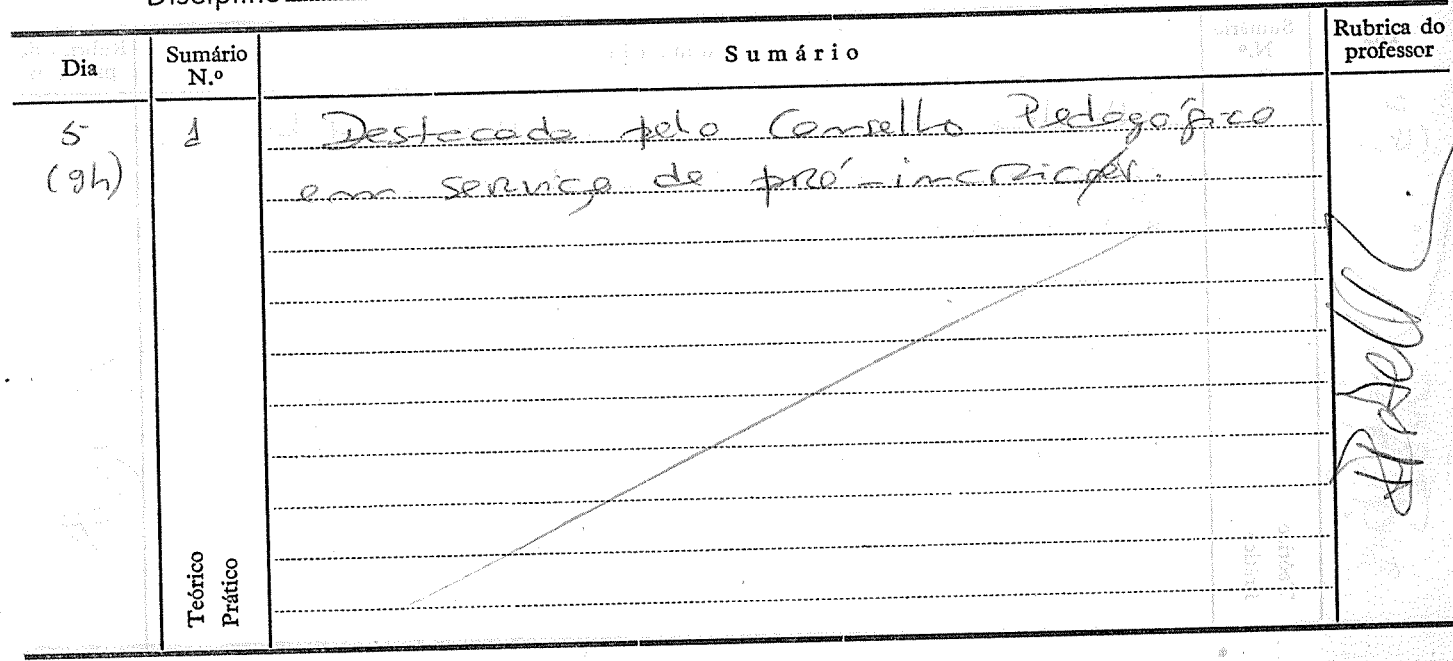 Dia
Sumário N.º
Sumário
Rubrica do professor
5
(9h)
1
Destacada pelo Conselho Pedagógico
em serviço de pré-inscrições.
Teórico
Prático